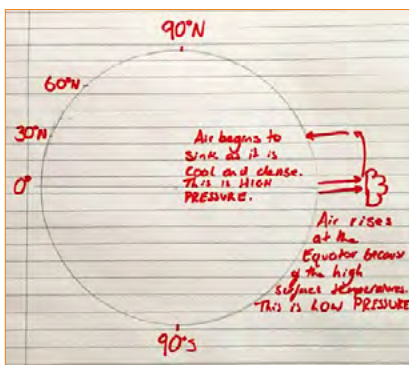 90°N
60°N
30°N
Air begins to
sink as it is
cool and dense.
This is HIGH
PRESSURE.
0°
Air rises
at the
Equator because
of the high
surface temperatures.
This is LOW PRESSURE
90°S